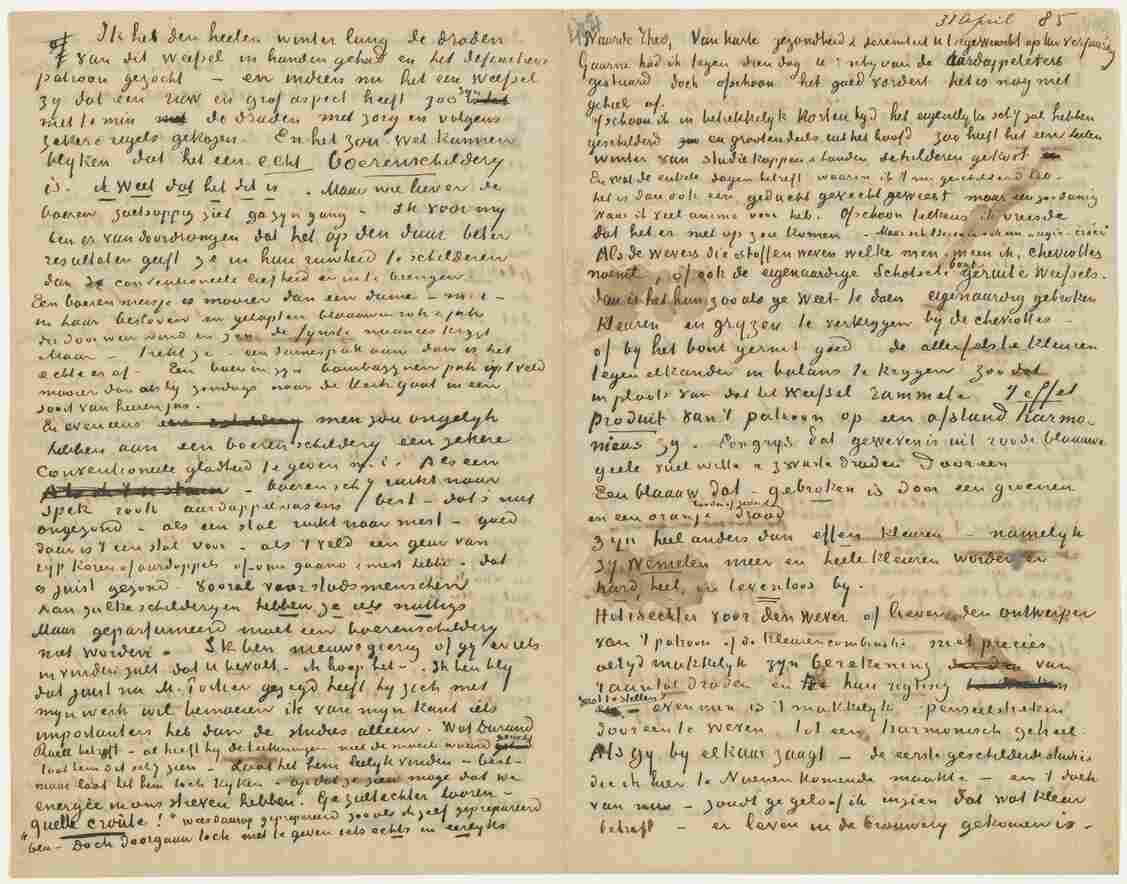 Ik heb den heelen winter lang de draden
van dit weefsel in handen gehad en het definitieve
patroon gezocht – en indien nu het een weefsel
zy dat een ruw en grof aspect heeft zoo zyn
niettemin de draden met zorg en volgens
zekere regels gekozen. En het zou wel kunnen
blyken dat het een echt boerenschildery
is. ik weet dat het dit is. Maar wie liever de
boeren zoetsappig ziet ga zyn gang. Ik voor my
ben er van doordrongen dat het op den duur beter
resultaten geeft ze in hun ruwheid te schilderen
dan conventioneele liefheid er in te brengen.
Een boerenmeisje is mooier dan een dame – m.i. –
in haar bestoven en gelapten blaauwen rok & jak
die door weer wind en zon de fynste nuances krygt
Maar – trekt ze – een damespak aan dan is het
echte er af. Een boer in zyn bombazynen pak op 't veld
mooier dan als hy zondags naar de kerk gaat in een
soort van heerenjas.
En eveneens men zou ongelyk
hebben aan een boerenschildery een zekere
conventioneele gladheid te geven m.i. Als een
boerenschy ruikt naar
spek rook aardappelwasem best – dat 's niet
ongezond – als een stal ruikt naar mest – goed
daar is 't een stal voor – als 't veld een geur van
ryp koren of aardappels of van guano & mest hebbe – dat
is juist gezond vooral voor stadsmenschen
Aan zulke schilderyen hebben ze iets nuttigs
Maar geparfumeerd moet een boerenschildery
niet worden. Ik ben nieuwsgierig of gy er iets
in vinden zult dat U bevalt – ik hoop het – Ik ben bly
dat juist nu M. Portier gezegd heeft hy zich met
myn werk wil bemoeien ik van myn kant iets
importanters heb dan de studies alleen. Wat Durand
Ruel betreft – al heeft hy de teekeningen niet de moeite waard geacht
laat hem dit schy zien – laat het hem leelyk vinden – best –
maar laat het hem toch kyken – opdat ze zien moge dat we
energie in ons streven hebben. Ge zult echter hooren –
"quelle croûte!" wees daarop geprepareerd zooals ik zelf geprepareerd
ben – Doch doorgaan toch met te geven iets echts en eerlyks
31 April 85
Waarde Theo, Van harte gezondheid & sereniteit U toegewenscht op uw verjaardag
Gaarne had ik tegen dien dag U 't schy van de aardappeleters
gestuurd doch ofschoon het goed vordert het is nog niet
geheel af.
Ofschoon ik in betrekkelyk korten tyd het eigentlyke schy zal hebben
geschilderd en grootendeels uit het hoofd zoo heeft het een heelen
winter van studie koppen & handen schilderen gekost
En wat de enkele dagen betreft waarin ik 't nu geschilderd heb –
het is dan ook een geducht gevecht geweest maar een zoodanig
waar ik veel animo voor heb. Ofschoon telkens ik vreesde
dat het er niet op zou komen – Maar schilderen is ook een "agir – créer"
Als de wevers die stoffen weven welke men meen ik, cheviottes
noemt, of ook de eigenaardige Schotsche bont geruite weefsels –
dan is het hun zooals ge weet te doen eigenaardig gebroken
kleuren en gryzen te verkrygen by de cheviottes –
of by het bont geruit goed – de allerfelste kleuren
tegen elkander in balans te krygen zoodat
in plaats van dat het weefsel rammele 't effet
produit van 't patroon op een afstand harmo-
nieus zy. Een grys dat geweven is uit roode blaauwe
geele vuil witte & zwarte draden dooreen
Een blaauw dat – gebroken is door een groenen
en een oranje rooden of geelen draad
zyn heel anders dan effen kleuren – namelyk
zy wemelen meer en heele kleuren worden er
hard, heel, en levenloos by.
Het is echter voor den wever of liever den ontwerper
van 't patroon of de kleurencombinatie niet precies
altyd makkelyk zyn berekening van
't aantal draden en hun rigting
vast te stellen
evenmin is 't makkelyk penseelstreken
dooreen te weven tot een harmonisch geheel.
Als gy by elkaar zaagt – de eerste geschilderde studies
die ik hier te Nuenen komende maakte – en 't doek
van nu – zoudt ge geloof ik inzien dat wat kleur
betreft – er leven in de brouwery gekomen is –